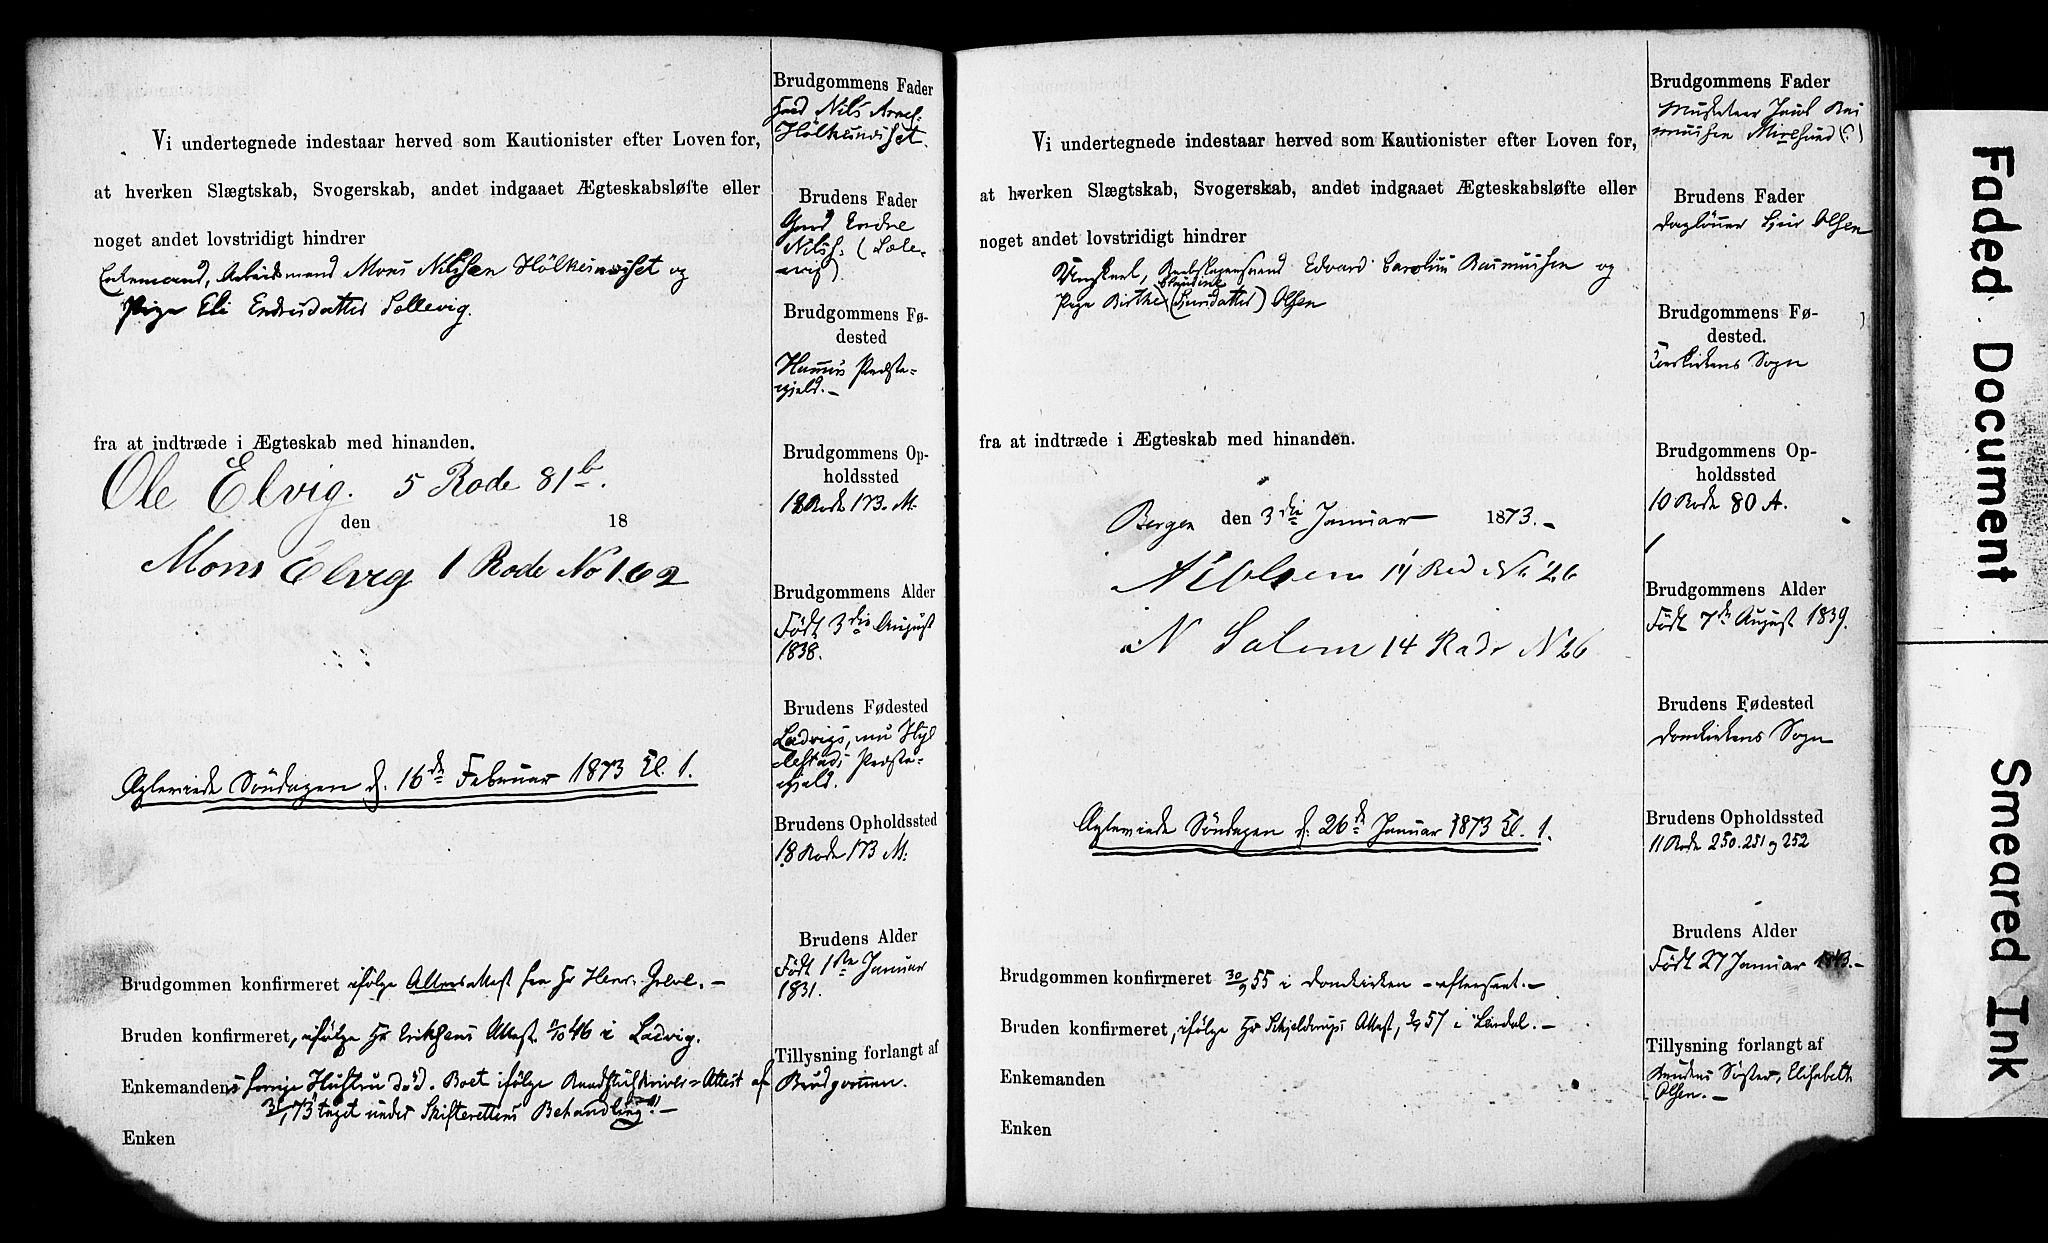 Vi undertegnede indestaar herved som Kautionister efter Loven for,
at hverken Slægtskab, Svogerskab, andet indgaaet Ægteskabsløfte eller
noget andet lovstridigt hindrer
Enkemand, Arbeidsmand Mons Nilssen Hölkesundset og
Pige Eli Endresdatter Sællevig.
fra at indtræde i Ægteskab med hinanden.
Ole Elvig. 5 Rode 81b.
den 18
Mons Elvig 1 Rode No 162
Agleviede Söndagen d. 16de Februar 1873 Kl. 1.
Brudgommen konfirmeret ifølge Altersattest fra Hr Henr. Gelve. -
Bruden konfirmeret, ifølge Hr Erichsens Attest 46 i Ladvig.
Enkemandens forrige Hustru død. Boet ifølge Attest af
73 taget under Skifterettens Behandling. -
Enken
Brudgommens Fader
Nils
Brudens Fader
Gmd Endre
Nilss. (Sæle-
vig)
Brudgommens Fø-
dested
Hammers Præste-
gjeld. -
Brudgommens Op-
holdssted
18 Rode 173. M.
Brudgommens Alder
Født 3die August
1838.
Brudens Fødested
Ladvigs, nu Hyl
lestads Præste-
gjeld.
Brudens Opholdssted
18 Rode 173 M.
Brudens Alder
Født 1ste Januar
1831.
Tillysning forlangt af
Brudgommen.
Vi undertegnede indestaar herved som Kautionister efter Loven for,
at hverken Slægtskab, Svogerskab, andet indgaaet Ægteskabsløfte eller
noget andet lovstridigt hindrer
Ungkarl, Redskabsmand Edvard Carolius Rasmussen og
Pige Birthe Claudine (Siursdatter) Olsen
fra at indtræde i Ægteskab med hinanden.
Bergen den 3die Januar 1873. -
A Nilsen 14 Rod No 26
N Salem 14 Rode N 26
Agleviede Söndagen d. 26de Januar 1873 Kl. 1.
Brudgommen konfirmeret 30/9 55 i Domkirken - efterseet. -
Bruden konfirmeret, ifølge Hr Schjelderups Attest, 57 i Lærdal. -
Enkemanden
Enken
Brudgommens Fader
Musketeer Ras
mussen
Brudens Fader
Daglönner Siur Olsen
Brudgommens Fø-
dested.
Korskirkens Sogn
Brudgommens Op-
holdssted
10 Rode 80 A.
Brudgommens Alder
Født 7de August 1839.
Brudens Fødested
Domkirkens Sogn
Brudens Opholdssted
11 Rode 250. 251 og 252
Brudens Alder
Født 27 Januar 1843. -
Tillysning forlangt af
Brudens Søster, Elisabeth
Olsen. -
Faded Document
Smeared Ink